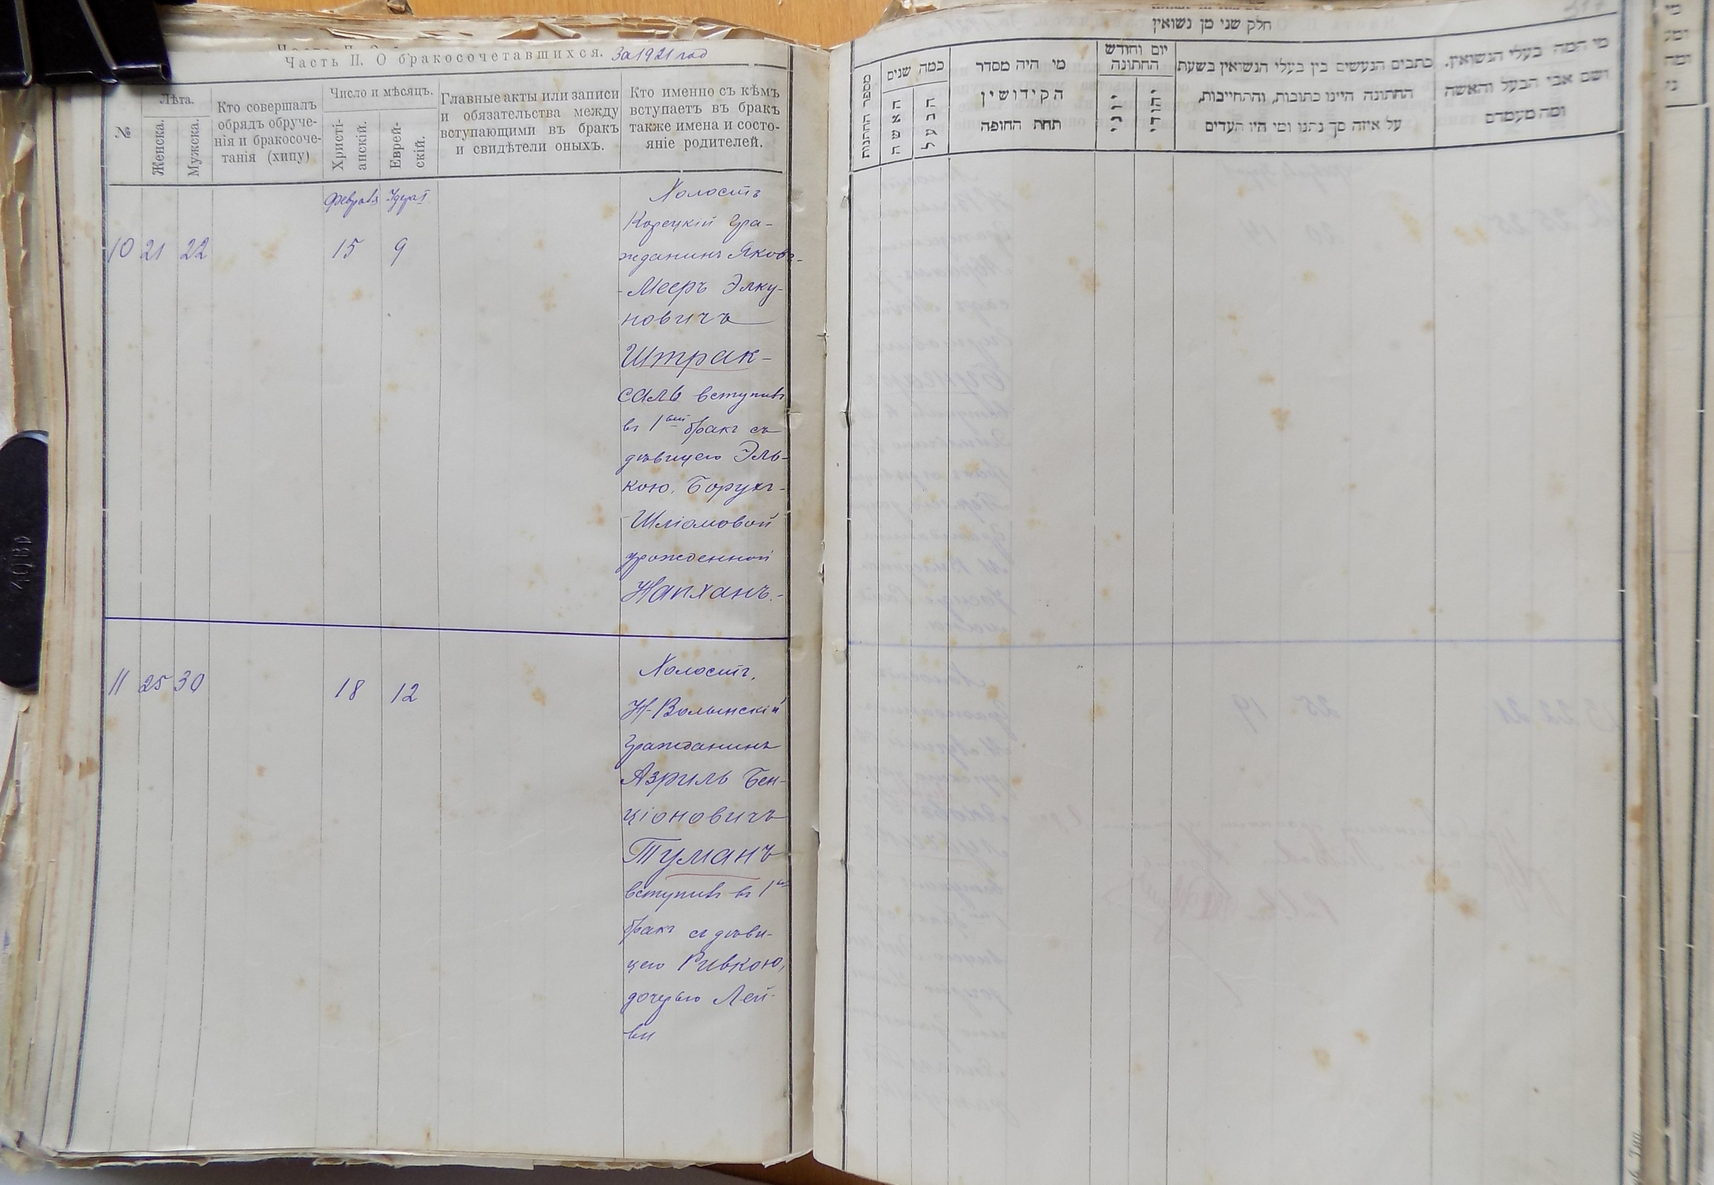 Часть II. О бракосочетавшихся. За 1921 год
№
Лѣта.
Женска.
Мужска.
Кто совершалъ
обрядъ обруче-
нія и бракосоче-
танія (хипу)
Число и мѣсяцъ.
Христі-
анскій.
Еврей-
скій.
Главные акты или записи
и обязательства между
вступающими въ бракъ
и свидѣтели оныхъ.
Кто именно съ кѣмъ
вступаетъ въ бракъ
также имена и состо-
яніе родителей.
Февраля
10 21 22 15 9
Холостъ
Корецкій гра-
жданинъ Яковъ-
-Мееръ Элку-
новичъ
Штрак-
салъ вступилъ
въ 1ый бракъ съ
дѣвицею Эль-
кою, Борухъ-
-Шліомовой
урожденной
Напханъ.-
11 25 30 18 12
Холостъ,
Н-Волынскій
гражданинъ
Азриль Бен-
ціоновичъ
Туманъ
вступилъ въ 1ый
бракъ съ дѣви-
цею Ривкою,
дочерью Лей-
вы
חלק שני מן נשואין
מספר החתונות
כמה שנים
האשה
הבעל
מי היה מסדר
הקידושין
תחת החופה
יום וחודש
החתונה
יווני
יהודי
כתבים הנעשים בין בעלי הנשואין בשעת
החתונה היינו כתובות, והתחייבות,
על איזה סך נתנו ומי היו העדים
מי המה בעלי הנשואין,
ושם אבי הבעל והאשה
ומה מעמדם